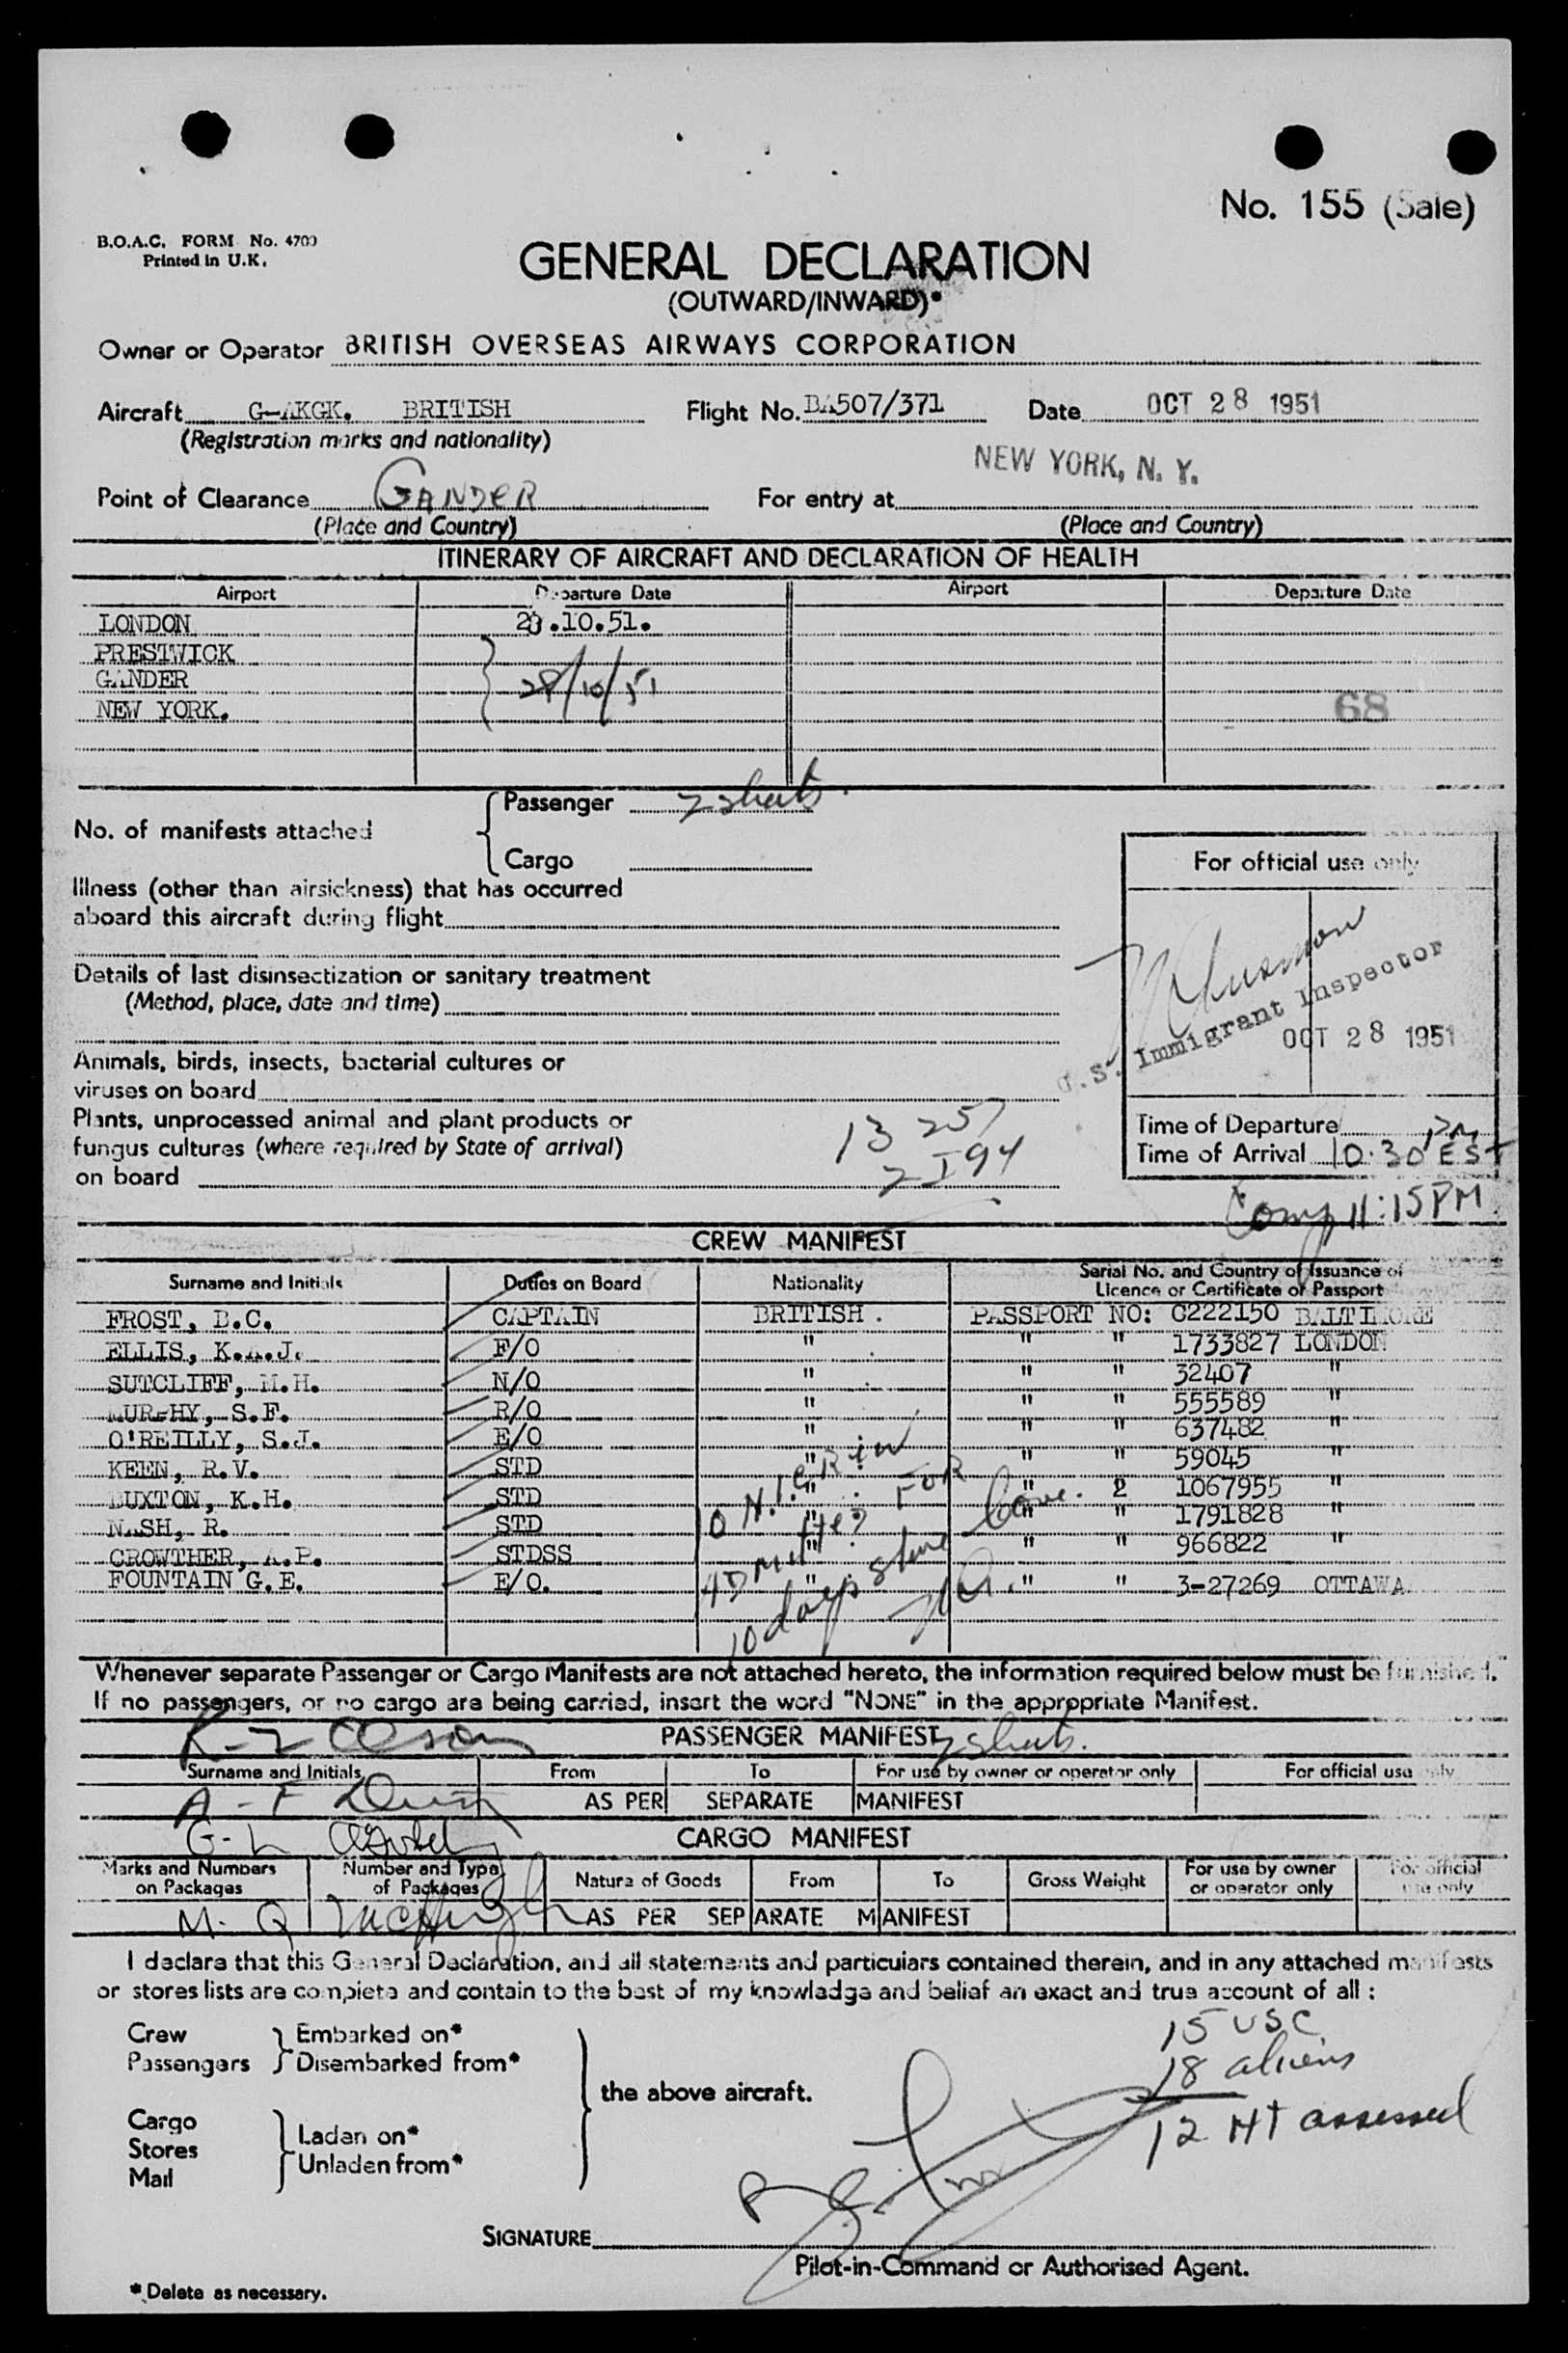 No. 155 (Sale)
B.O.A.C. FORM No. 4700
Printed in U.K.
GENERAL DECLARATION
(OUTWARD/INWARD)*
Owner or Operator BRITISH OVERSEAS AIRWAYS CORPORATION
Aircraft G-AKGK. BRITISH Flight No. BA507/371 Date OCT 28 1951
(Registration marks and nationality)
NEW YORK, N. Y.
Point of Clearance GANDER For entry at
(Place and Country) (Place and Country)
ITINERARY OF AIRCRAFT AND DECLARATION OF HEALTH
Airport Departure Date Airport Departure Date
LONDON .10.51.
PRESTWICK
GANDER 28/10/51
NEW YORK. 68
Passenger 2 sheets.
No. of manifests attached
Cargo
For official use only
Illness (other than airsickness) that has occurred
aboard this aircraft during flight
Details of last disinsectization or sanitary treatment
(Method, place, date and time)
U.S. Immigrant Inspector
OCT 28 1951
Animals, birds, insects, bacterial cultures or
viruses on board
Plants, unprocessed animal and plant products or
fungus cultures (where required by State of arrival)
on board
13 257
2 I 94
Time of Departure
Time of Arrival 10:30 PM EST
Comp 11:15 PM
CREW MANIFEST
Surname and Initials Duties on Board Nationality Serial No. and Country of Issuance of
Licence or Certificate or Passport
FROST, D.C. CAPTAIN BRITISH. PASSPORT NO: C222150 BALTIMORE
ELLIS, K.A.J. F/O " " " 1733827 LONDON
SUTCLIFF, M.H. N/O " " " 32407 "
MURPHY, S.F. R/O " " " 555589 "
O'REILLY, S.J. E/O " " " 637482 "
KEEN, R.V. STD " " " 59045 "
BUXTON, K.H. STD " " 2 1067955 "
NASH, R. STD " " " 1791828 "
CROWTHER, A.P. STDSS " " " 966822 "
FOUNTAIN G.E. E/O. " " " 3-27269 OTTAWA
10 N.I.
Admitted FOR
10 days shore leave.
Whenever separate Passenger or Cargo Manifests are not attached hereto, the information required below must be furnished.
If no passengers, or no cargo are being carried, insert the word "NONE" in the appropriate Manifest.
PASSENGER MANIFEST 2 sheets.
Surname and Initials From To For use by owner or operator only For official use only
AS PER SEPARATE MANIFEST
CARGO MANIFEST
Marks and Numbers on Packages Number and Type of Packages Nature of Goods From To Gross Weight For use by owner or operator only For official use only
M. Q McHugh AS PER SEPARATE MANIFEST
I declare that this General Declaration, and all statements and particulars contained therein, and in any attached manifests
or stores lists are complete and contain to the best of my knowledge and belief an exact and true account of all :
15 USC
18 aliens
12 HT assessed
Crew Embarked on*
Passengers Disembarked from*
the above aircraft.
Cargo
Stores Laden on*
Mail Unladen from*
SIGNATURE
Pilot-in-Command or Authorised Agent.
* Delete as necessary.